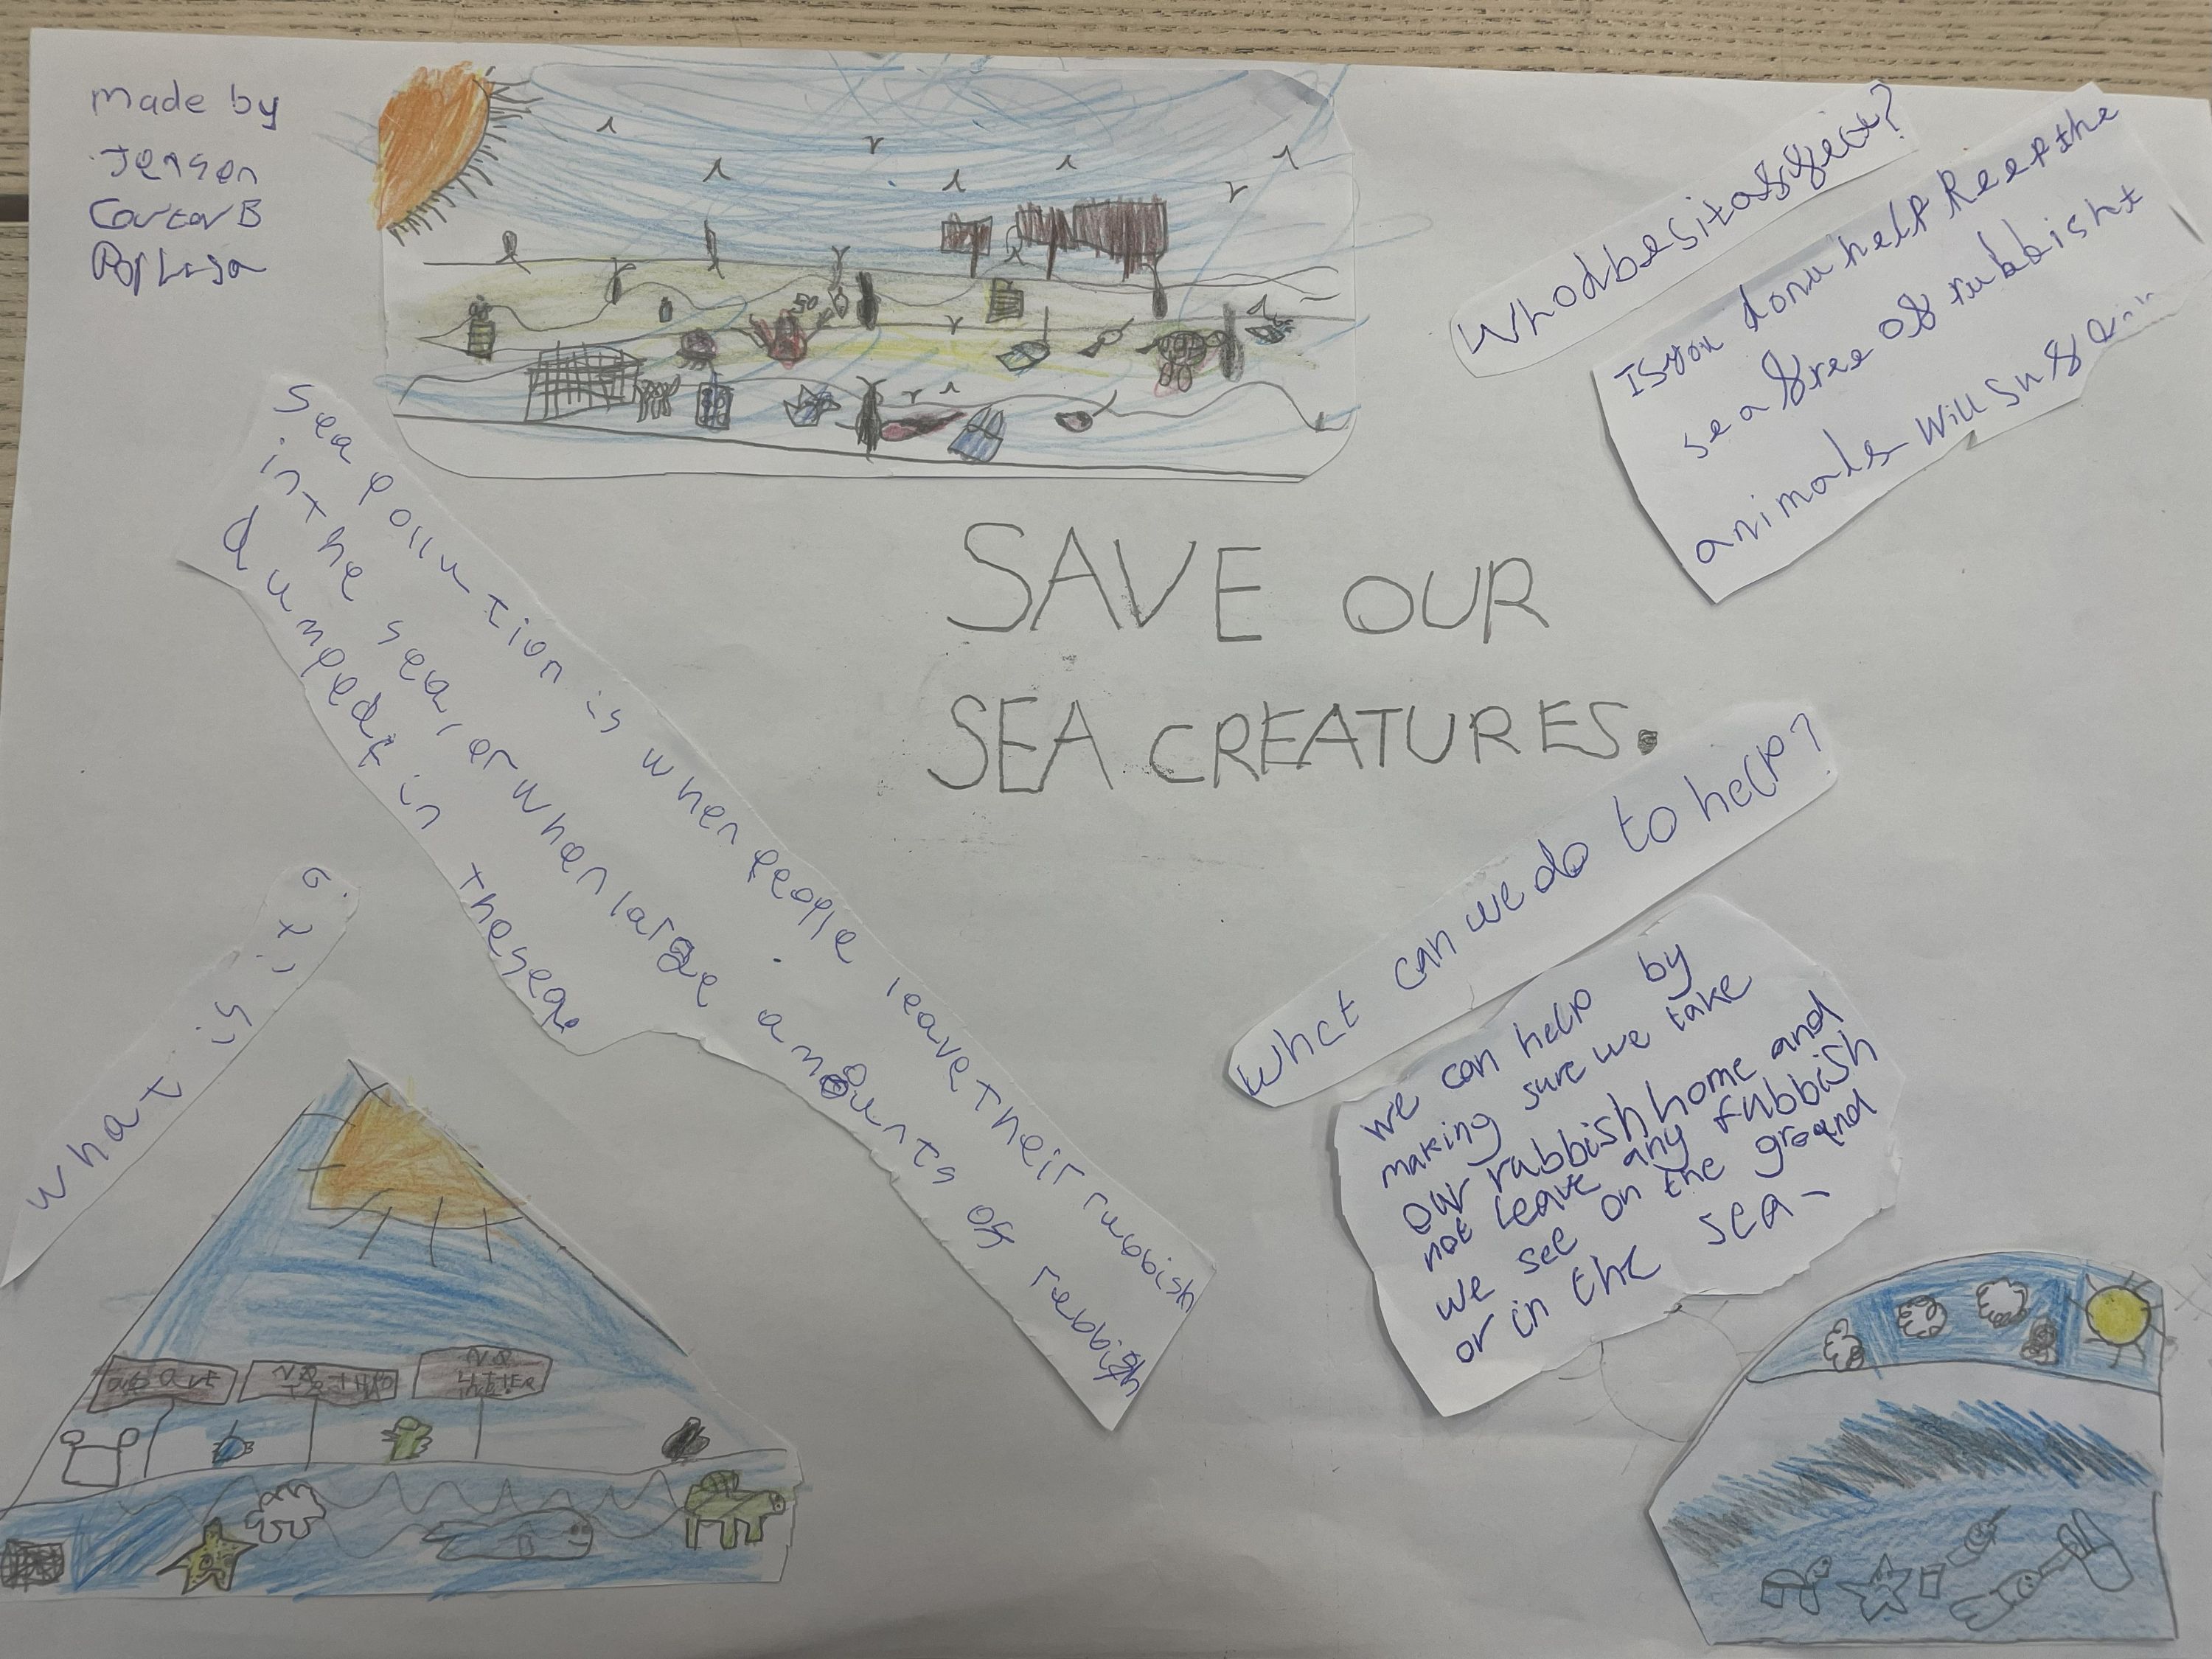 made by
Jenson
Carter B
SAVE OUR
SEA CREATURES.
Sea pollution is when people leave their rubbish
in the sea, or when large amounts of rubbish
dumped in thesea
what is it?
IS you donu help keep the
sea free of rubbish t
animals will suffer
What can we do to help?
we can help by
making sure we take
our rubbish home and
not leave any rubbish
we see on the ground
or in the sea-
NO
LITTER